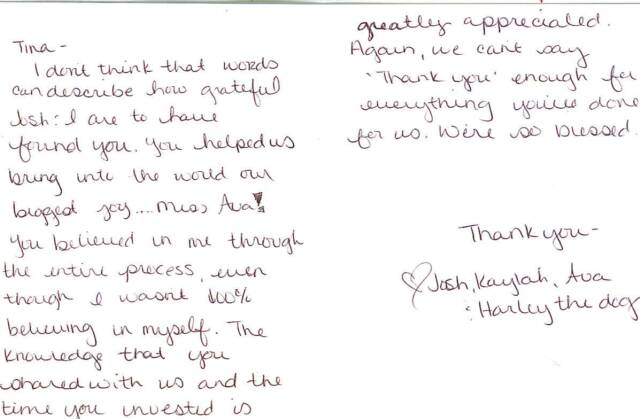 Tina -
I don't think that words
can describe how grateful
Josh : I are to have
found you. You helped us
bring into the world our
biggest joy.... Miss Ava!
You believed in me through
the entire process, even
though I wasn't 100%
believing in myself. The
knowledge that you
shared with us and the
time you invested is
greatly appreciated.
Again, we can't say
'Thank you' enough for
everything you've done
for us. We're so blessed.
Thank you -
♡ Josh, Kaylah, Ava
: Harley the dog